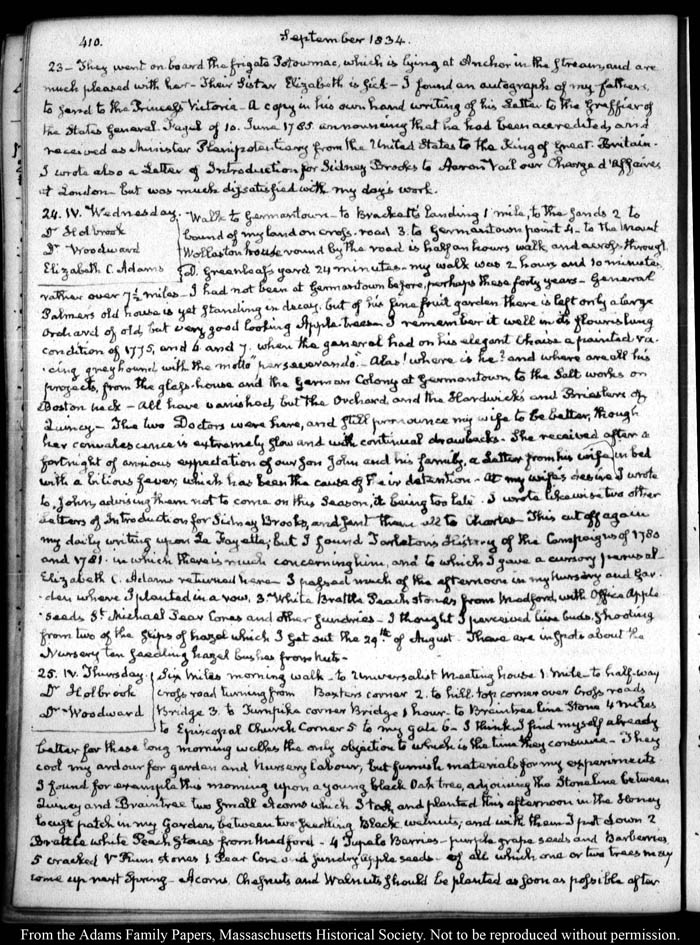 410.
September 1834.
23— They went on board the frigate Potowmac, which is lying at Anchor in the Stream, and are
much pleased with her— Their Sister Elizabeth is sick— I found an autograph of my fathers,
to send to the Princess Victoria— A copy in his own hand writing of his Letter to the Greffier of
the States General Fagel of 10. June 1785 announcing that he had been accredited, and
received as Minister Plenipotentiary from the United States to the King of Great Britain.
I wrote also a Letter of Introduction for Sidney Brooks to Aaron Vail our Chargé d'Affaires
at London— but was much dissatisfied with my day's work.
24. IV. Wednesday.
Dr Holbrook
Dr Woodward
Elizabeth C. Adams
Walk to Germantown— to Brackett's Landing 1 mile, to the Sands 2 to
bound of my land on cross-road 3. to Germantown point 4— to the Mount
Wollaston house round by the road is half an hours walk and across through
D. Greenleaf's yard 24 minutes— my walk was 2 hours and 10 minutes
rather over 7½ miles— I had not been at Germantown before, perhaps these forty years— General
Palmers old house is yet standing in decay. but of his fine fruit garden there is left only a large
Orchard of old, but very good looking Apple-trees— I remember it well in its flourishing
condition of 1775, and 6 and 7. when the general had on his elegant Chaise a painted ra-
cing greyhound with the motto "perseverando"— Alas! where is he? and where are all his
projects, from the glass-house and the German Colony at Germantown to the Salt works on
Boston neck— All have vanished, but the Orchard, and the Hardwicks and Briesters of
Quincy— The two Doctors were here, and still pronounce my wife to be better, though
her convalescence is extremely slow and with continual drawbacks— She received after a
fortnight of anxious expectation of our Son John and his family, a Letter from his wife, in bed
with a bilious fever, which has been the cause of their detention— At my wife's desire I wrote
to John, advising them not to come on this Season, it being too late. I wrote likewise two other
Letters of Introduction for Sidney Brooks, and sent them all to Charles— This cut off again
my daily writing upon La Fayette; but I found Tarleton's History of the Campaigns of 1780
and 1781. in which there is much concerning him, and to which I gave a cursory perusal
Elizabeth C. Adams returned here— I passed much of the afternoon in my nursery and Gar-
den where I planted in a row, 3 White Brattle Peach stones from Medford, with Office Apple
seeds St Michael Pear Cores and other sundries— I thought I perceived live buds, shooting
from two of the slips of hazel which I set out the 29th of August. There are in spots about the
Nursery ten seedling hazel bushes from nuts—
25. IV. Thursday.
Dr Holbrook
Dr Woodward
Six Miles morning walk— to Universalist Meeting house 1. Mile— to half-way
cross road turning from Baxters corner 2. to hill-top corner over Cross roads
Bridge 3. to Turnpike corner Bridge 1 hour— to Braintree line Stone 4 miles
to Episcopal Church Corner 5 to my gate 6— I think I find myself already
better for these long morning walks the only objection to which is the time they consume— They
cool my ardour for garden and Nursery labour, but furnish materials for my experiments
I found for example this morning upon a young black Oak tree, adjoining the Stone line between
Quincy and Braintree two small Acorns which I took and planted this afternoon in the Honey
locust patch in my Garden, between two seedling Black walnuts; and with them I put down 2
Brattle white Peach Stones from Medford— 4 Tupelo Berries— purple grape seeds and Barberries
5 cracked Plum stones 1 Pear Core and sundry apple seeds— of all which one or two trees may
come up next Spring— Acorns, Chesnuts and Walnuts should be planted as soon as possible after
From the Adams Family Papers, Massachusetts Historical Society. Not to be reproduced without permission.